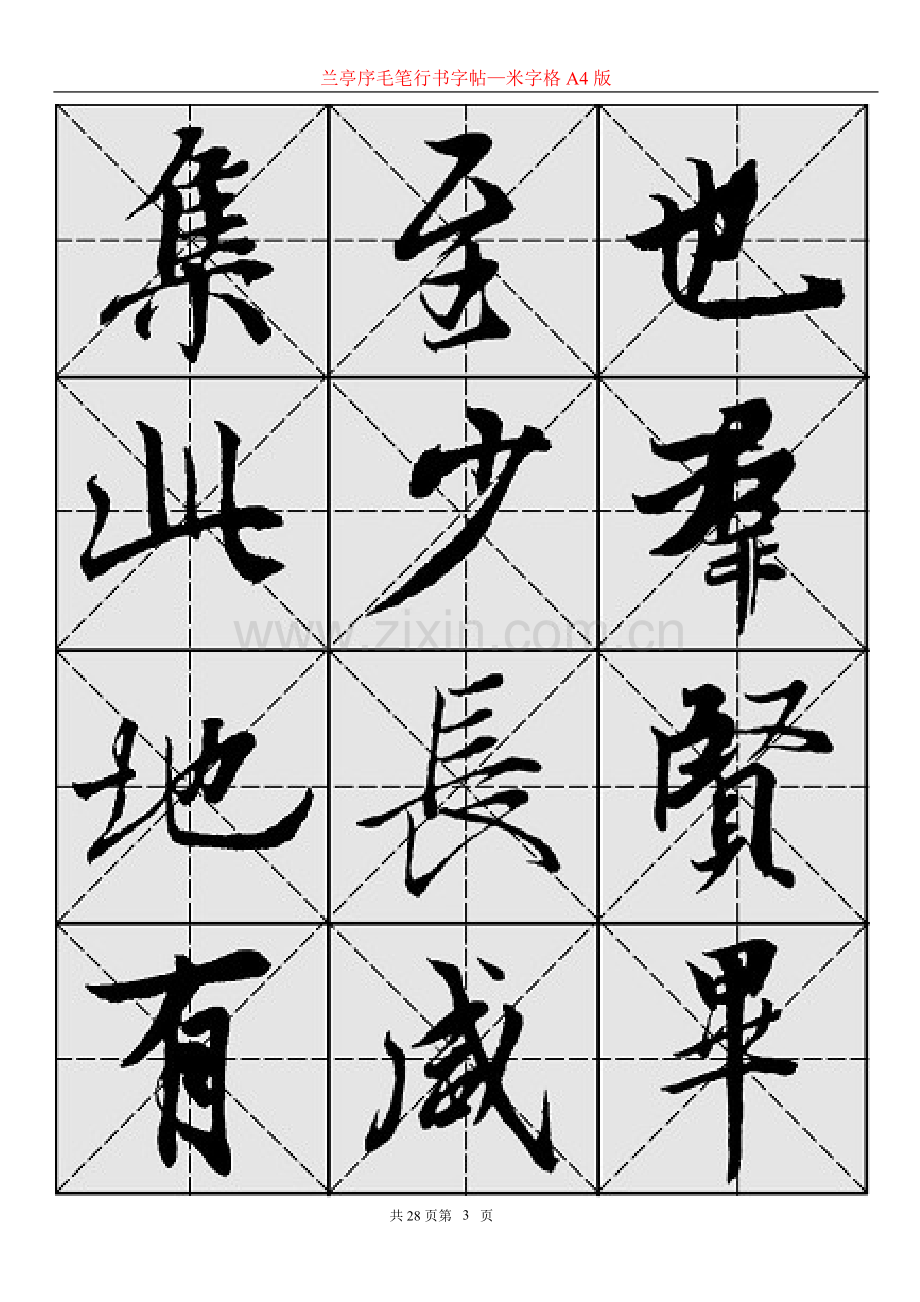 兰亭序毛笔行书字帖—米字格 A4 版
也羣賢畢
至少長咸
集此地有
www.zixin.com.cn
共 28 页第 3 页